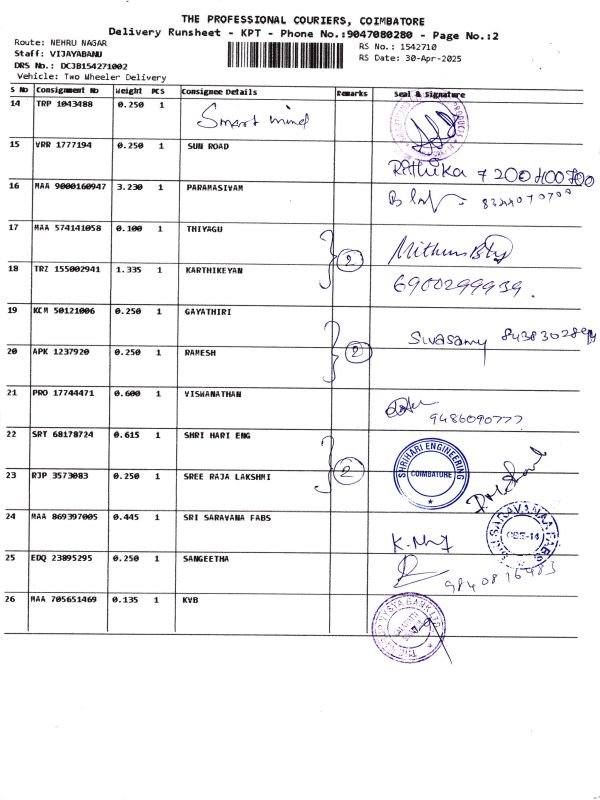 THE PROFESSIONAL COURIERS, COIMBATORE
Delivery Runsheet - KPT - Phone No.:9047080280 - Page No.:2
Route: NEHRU NAGAR
Staff: VIJAYABANU
DRS No.: DCJB154271002
Vehicle: Two Wheeler Delivery
RS No.: 1542710
RS Date: 30-Apr-2025
S No Consignment No Weight PCS Consignee Details Remarks Seal & Signature
14 TRP 1043488 0.250 1 Smart mind
15 VRR 1777194 0.250 1 SUN ROAD
Rathika
16 MAA 9000160947 3.230 1 PARAMASIVAM
17 MAA 574141058 0.100 1 THIYAGU
2
18 TRZ 155002941 1.335 1 KARTHIKEYAN
6900299939.
19 KCM 50121006 0.250 1 GAYATHIRI
2 Sivasamy
20 APK 1237920 0.250 1 RAMESH
21 PRO 17744471 0.600 1 VISWANATHAN
9486090777
22 SRT 68178724 0.615 1 SHRI HARI ENG
2 SHRIHARI ENGINEERING COIMBATORE
23 RJP 3573083 0.250 1 SREE RAJA LAKSHMI
24 MAA 869397005 0.445 1 SRI SARAVANA FABS
25 EDQ 23895295 0.250 1 SANGEETHA
9840816483
26 MAA 705651469 0.135 1 KVB